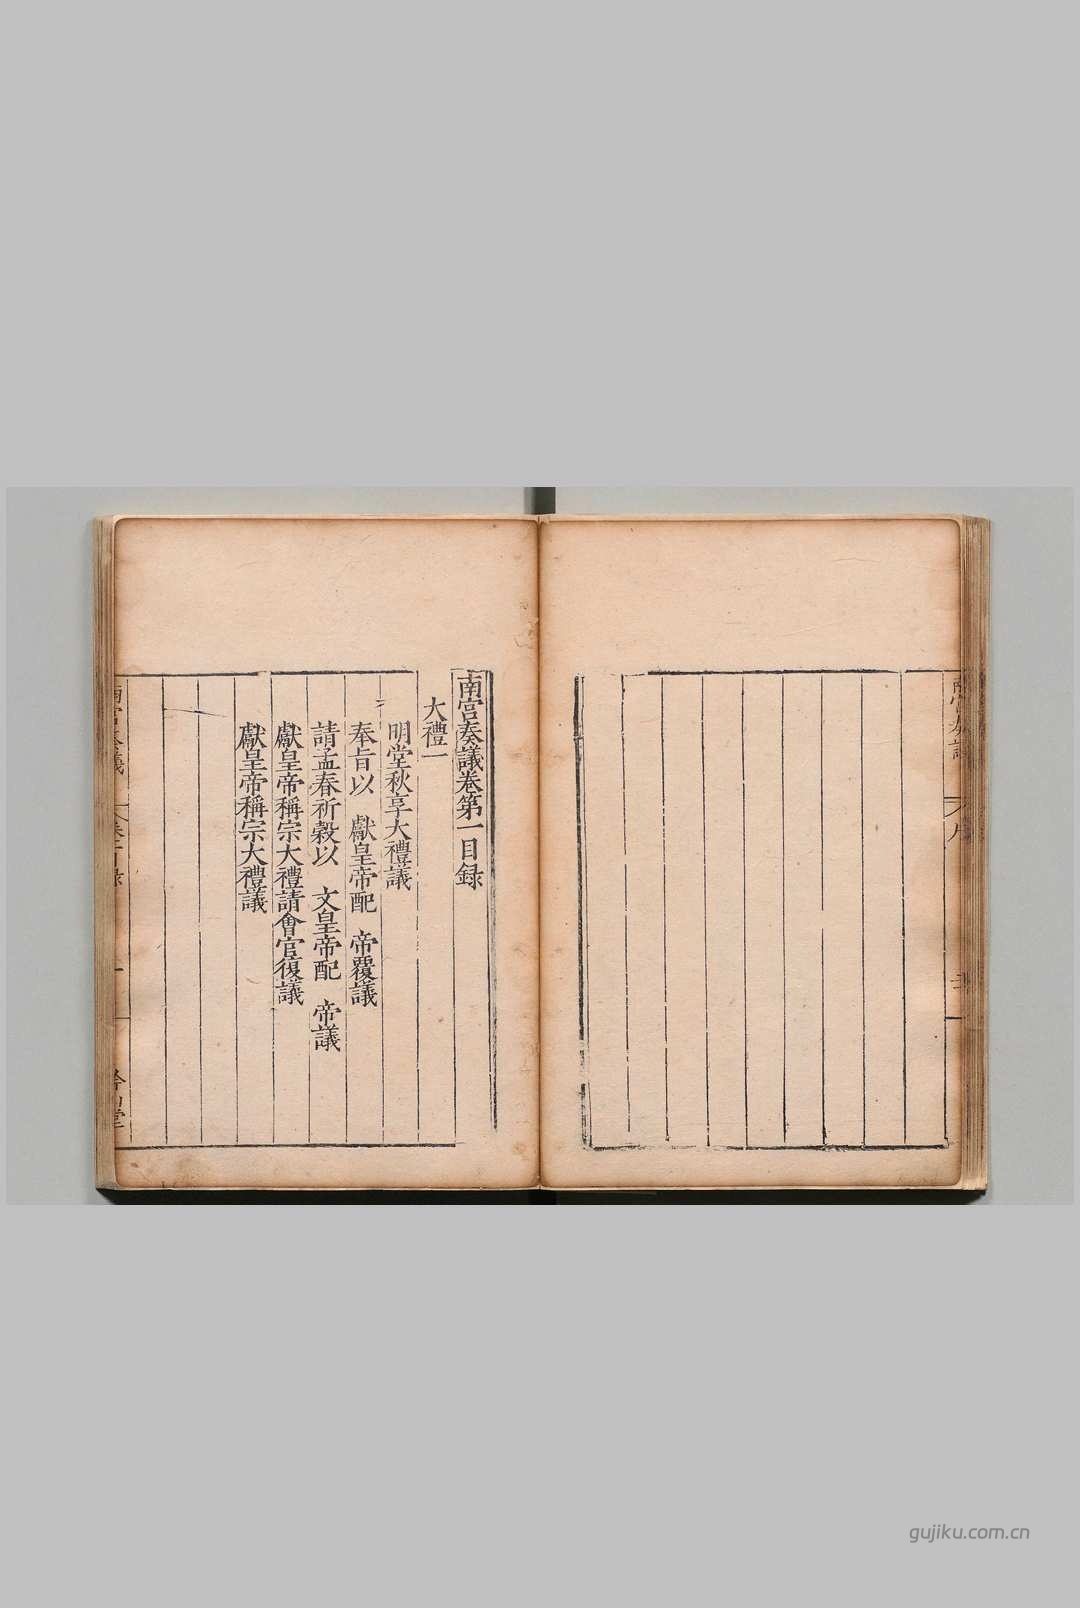 南宮奏議卷第一目録
大禮一
明堂秋享大禮議
奉旨以 獻皇帝配 帝覆議
請孟春祈穀以 文皇帝配 帝議
獻皇帝稱宗大禮請會官復議
獻皇帝稱宗大禮議
南宮奏議
gujiku.com.cn